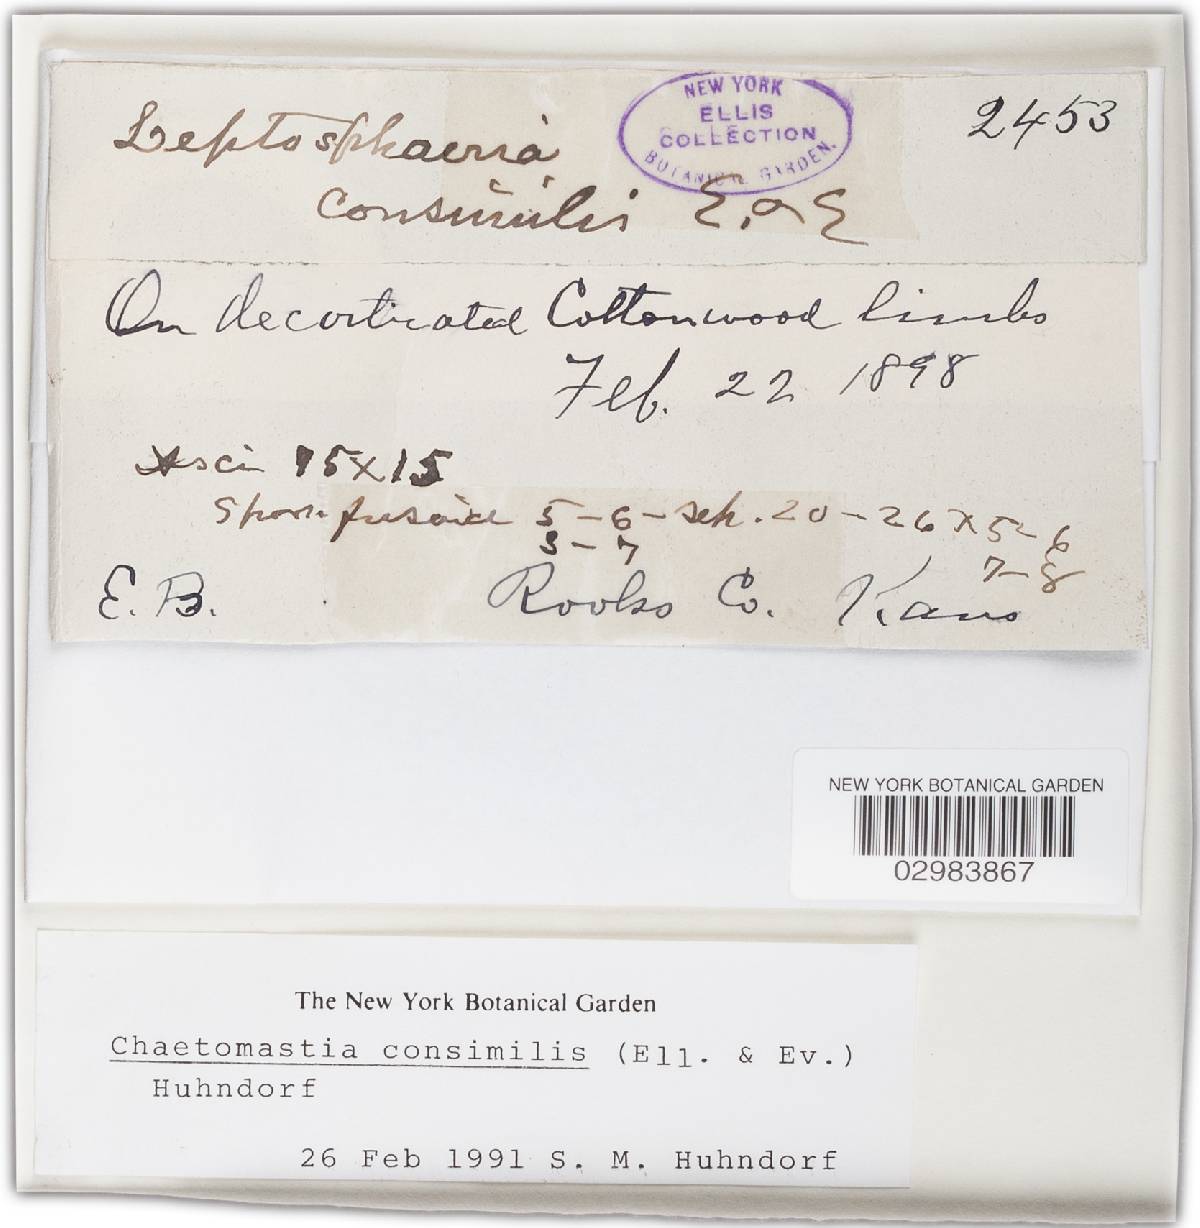 NEW YORK
ELLIS
COLLECTION
BOTANICAL GARDEN.
2453
Leptosphaeria
consimilis E. & E
On decorticated Cottonwood limbs
Feb. 22 1898
Asci 75x15
Spor. fusoid 5-6-sep. 20-26x5-6
3-7 7-8
E. B. Rooks Co. Kans
NEW YORK BOTANICAL GARDEN
02983867
The New York Botanical Garden
Chaetomastia consimilis (Ell. & Ev.)
Huhndorf
26 Feb 1991 S. M. Huhndorf